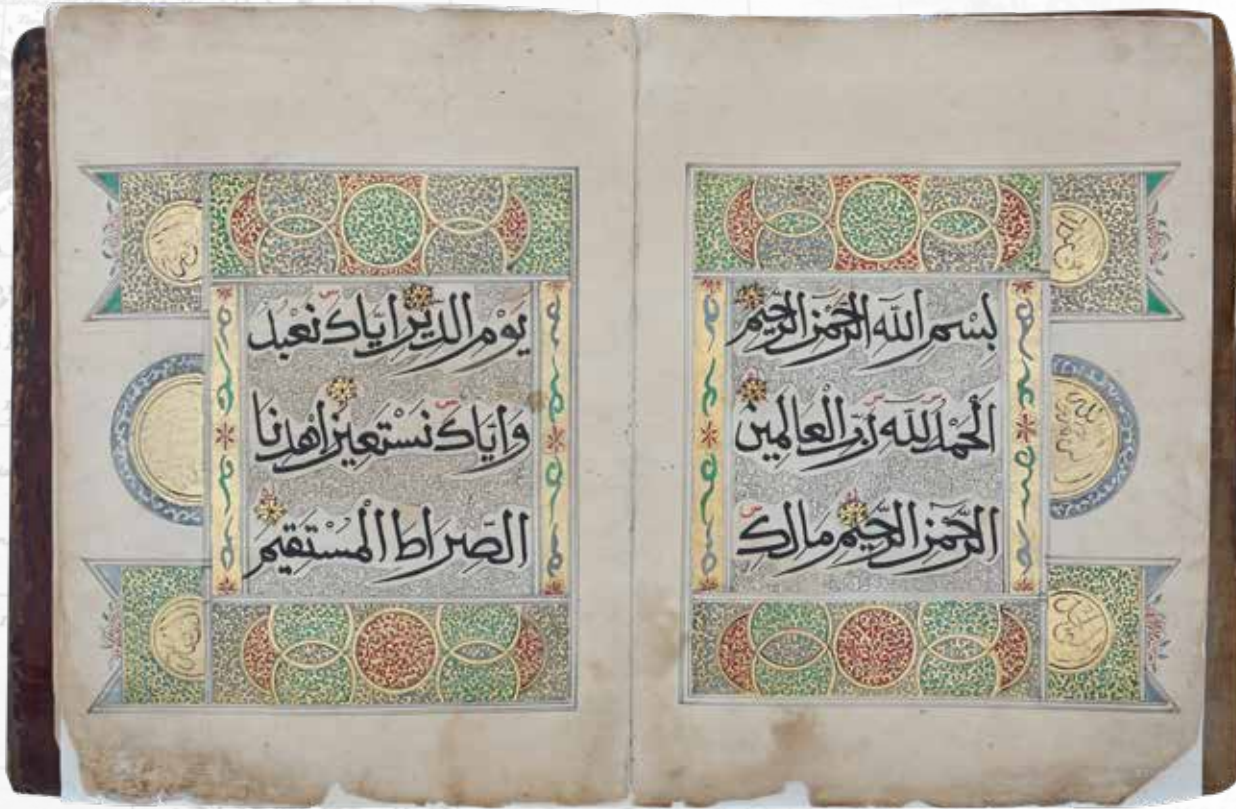 بِسْمِ اللَّه الرَّحْمَنِ الرَّحِيْمِ
الْحَمْدُ لِلَّه رَبِّ الْعَالَمِيْن
الرَّحْمَنِ الرَّحِيْمِ مَالِك
يَوْمِ الدِّيْنِ اِيَّاكَ نَعْبُدُ
وَاِيَّاكَ نَسْتَعِيْنُ اِهْدِنَا
الصِّرَاطَ الْمُسْتَقِيْمَ